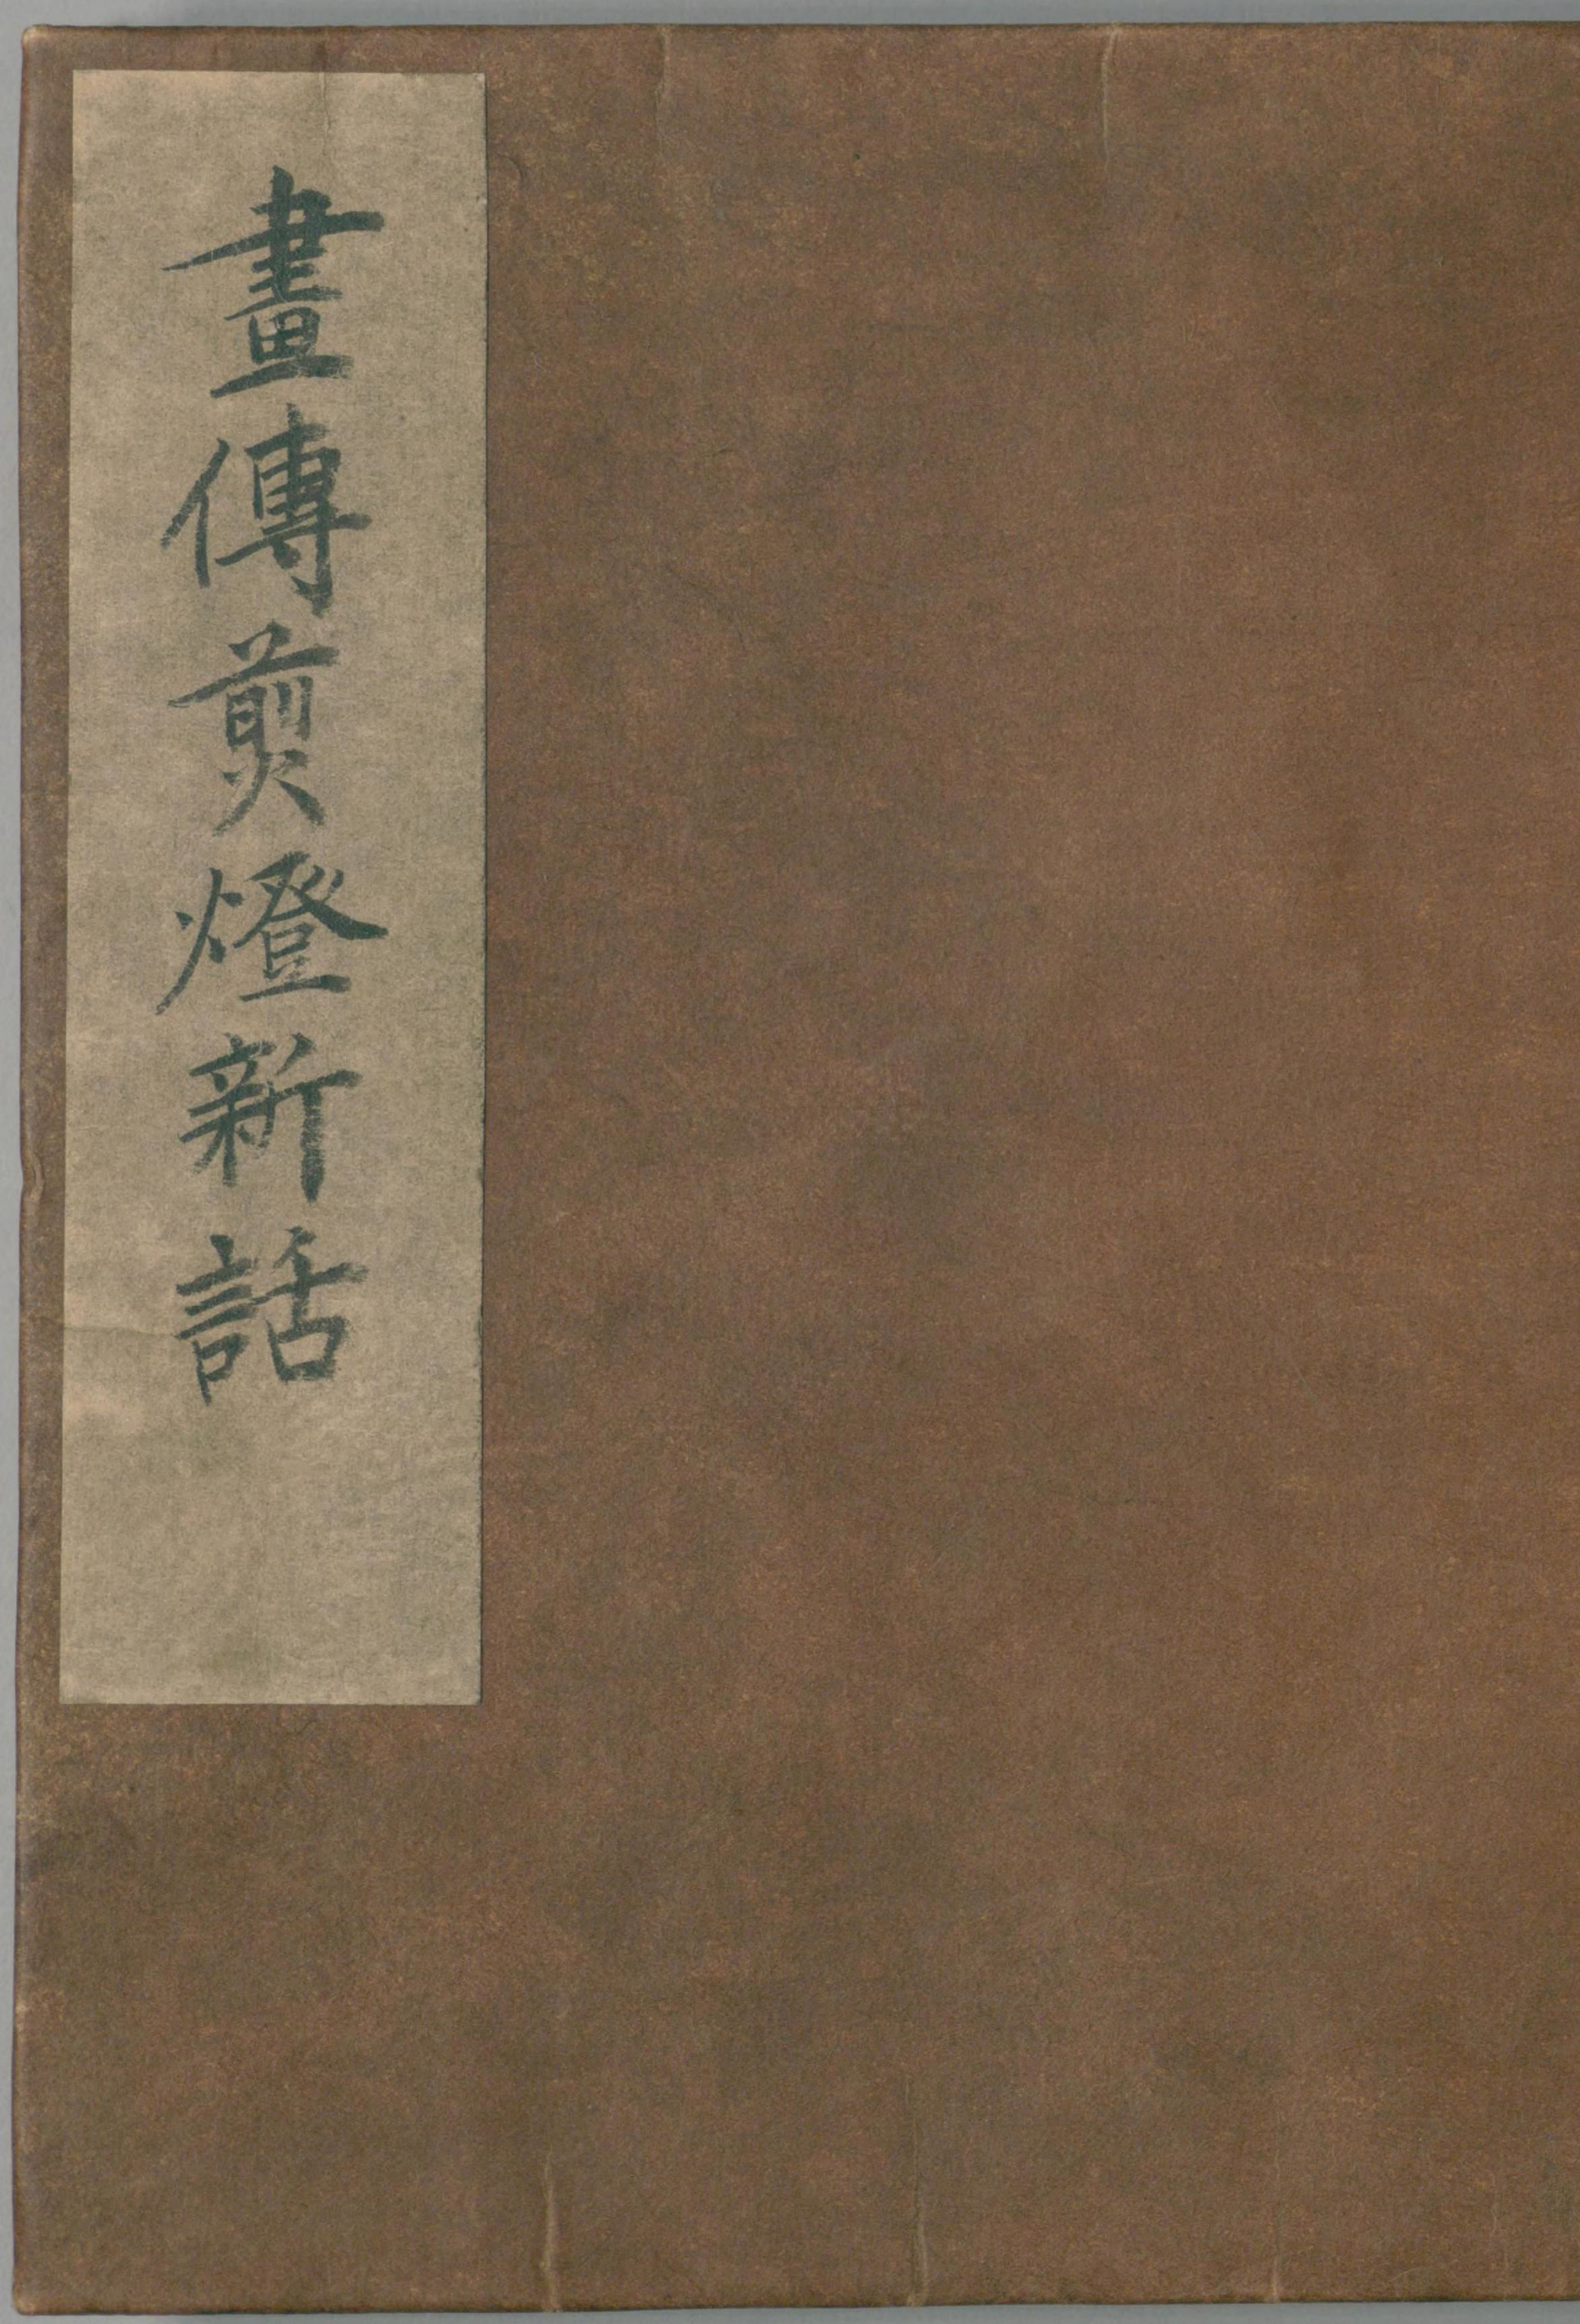 畫傳煎燈新話